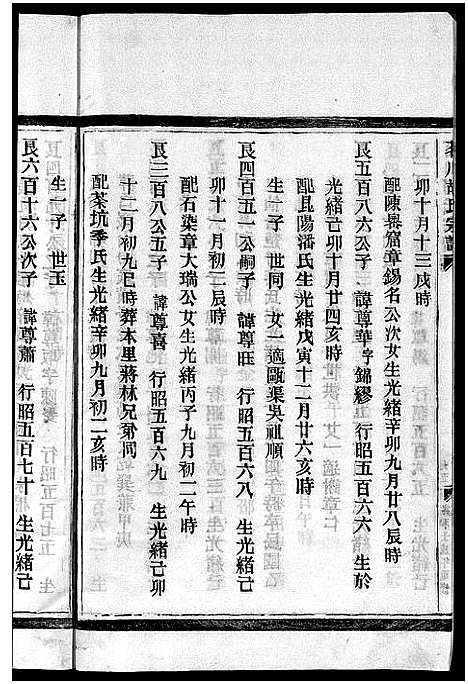 卯十月十三戌時
配陳㟧窟章錫名公次女生光緒辛卯九月廿八辰時
艮五百八六公子 諱尊華字錦繆 行昭五百六六 生於
光緒己卯十月廿四亥時
配昆陽潘氏生光緒戊寅十二月廿六亥時
生一子 世同 女一適甌渠吳祖順
艮四百五一公嗣子 諱尊旺 行昭五百六八 生光緒己
卯十一月初二辰時
配石染章大瑞公女生光緒丙子九月初二午時
艮三百八公五子 諱尊喜 行昭五百六九 生光緒己卯
十二月初九巳時葬本里蔣林兄
配茶坑季氏生光緒辛卯九月初二亥時
生一子 世玉
艮六百十六公次子 諱尊蕭 行昭五百七十 生光緒己